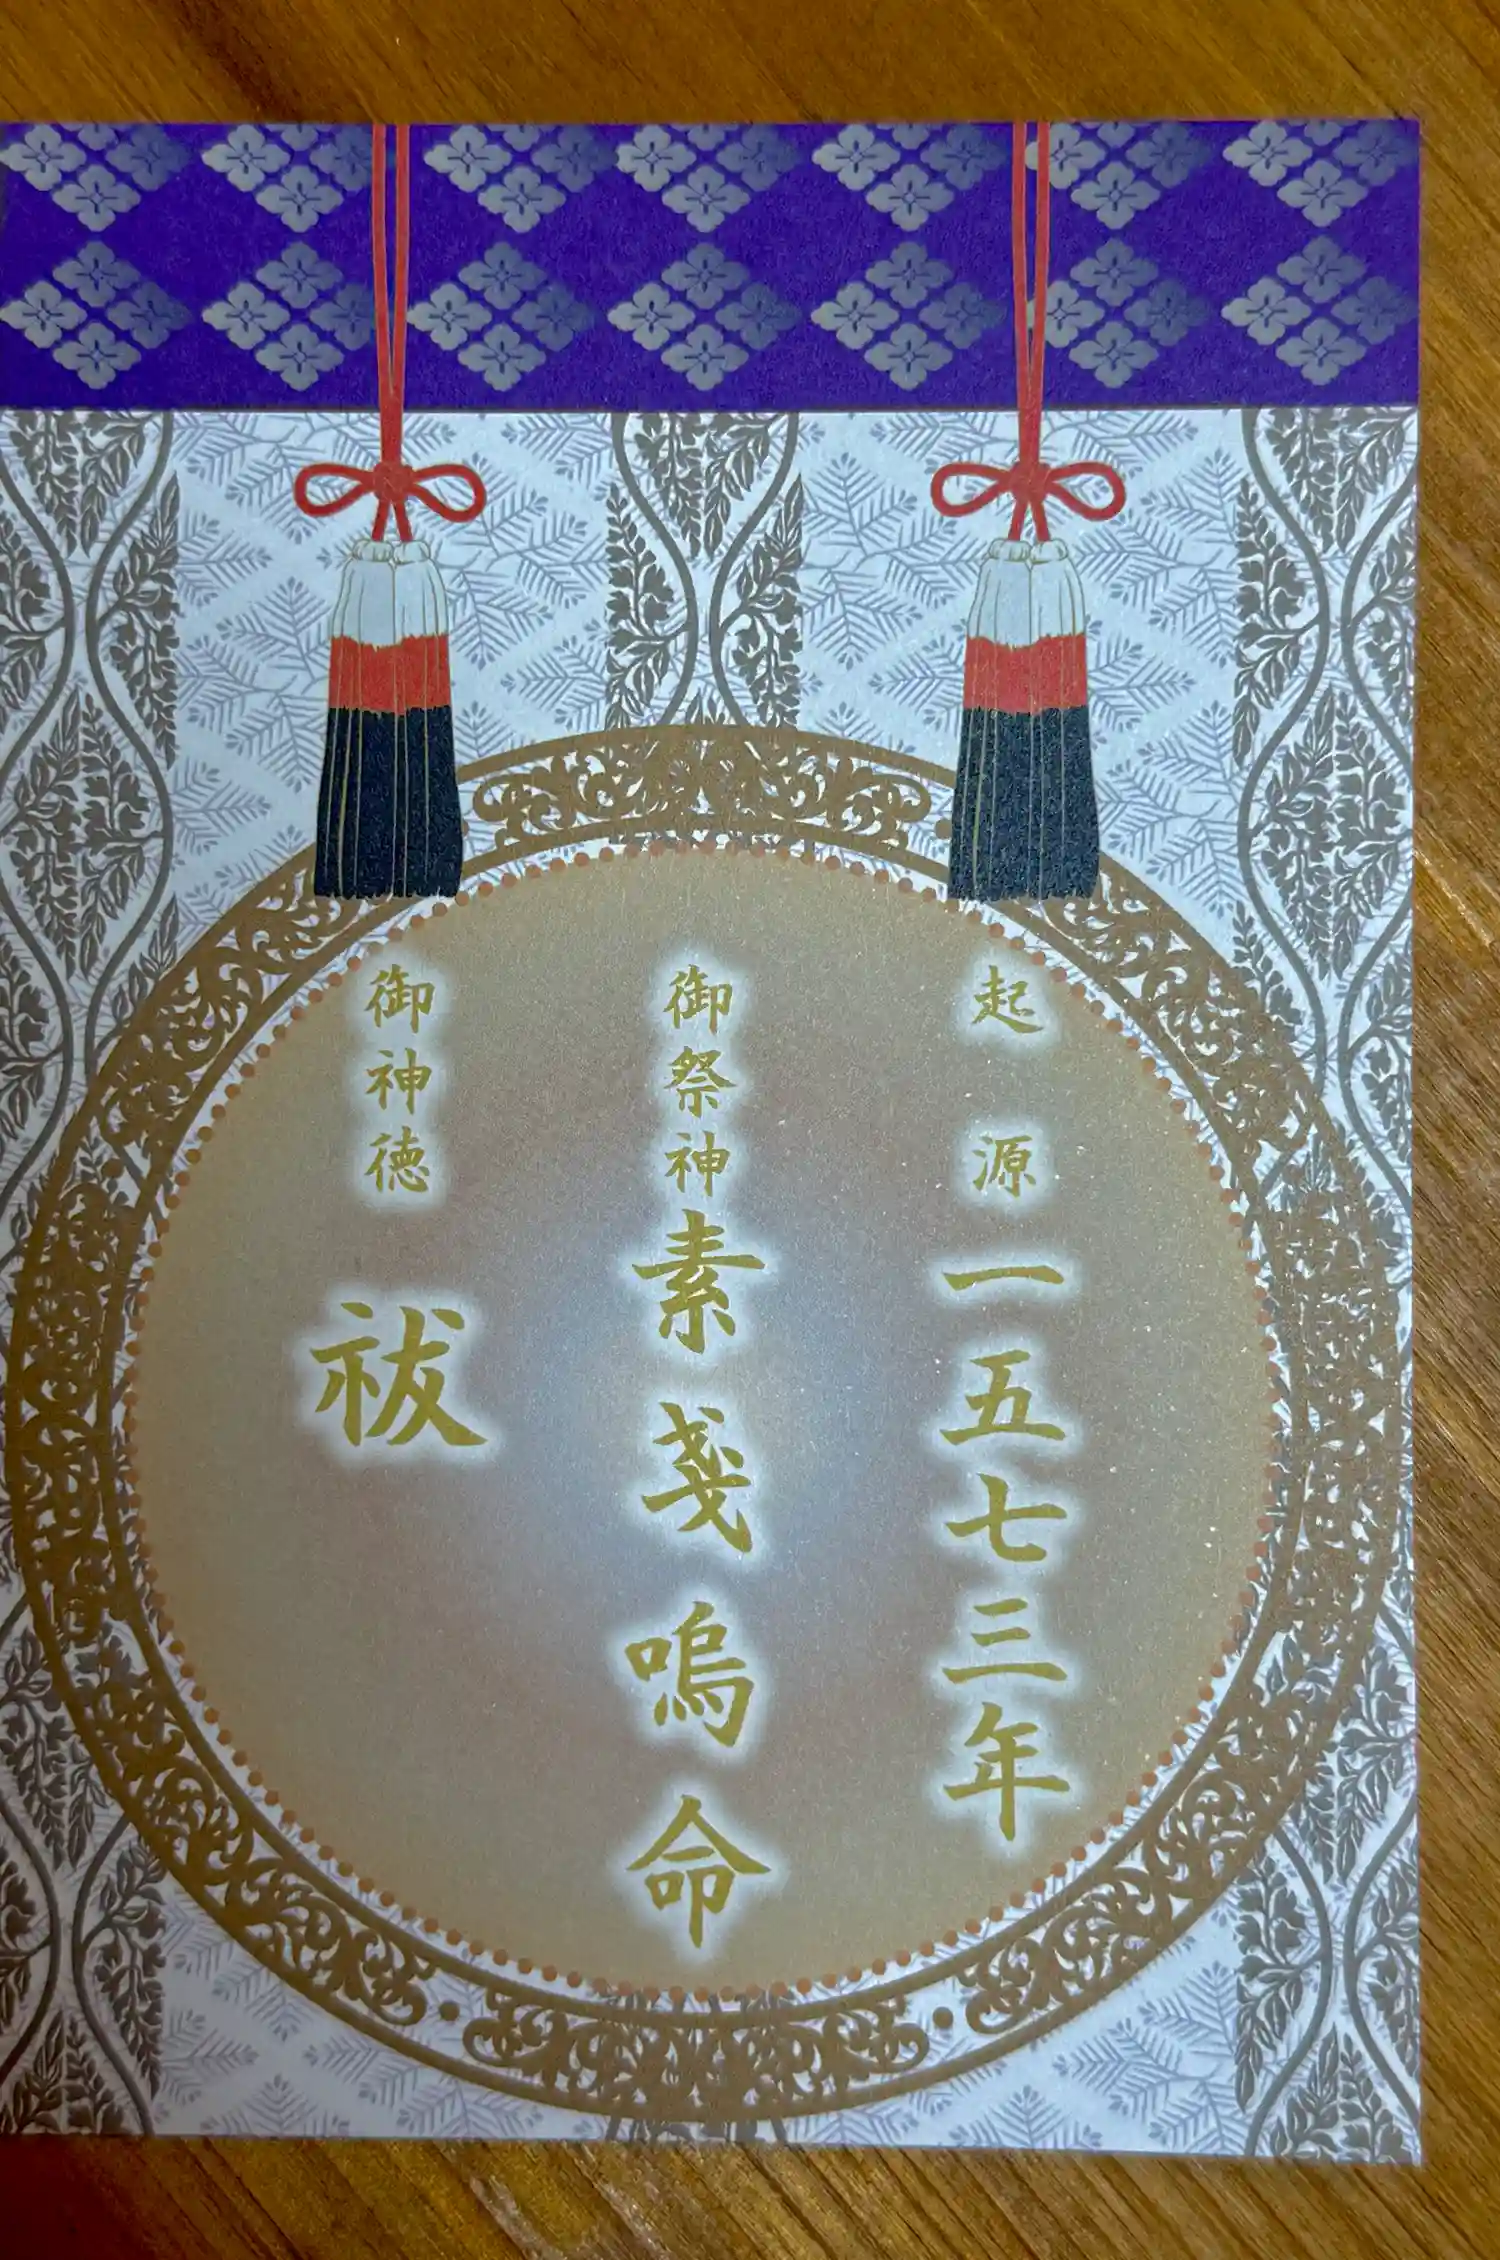 起源 一五七三年
御祭神 素戔嗚命
御神徳 祓